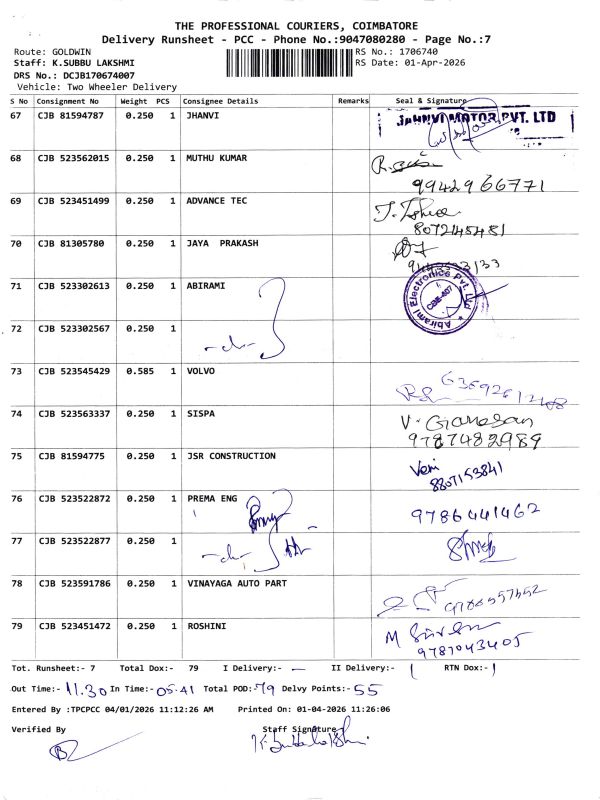 THE PROFESSIONAL COURIERS, COIMBATORE
Delivery Runsheet - PCC - Phone No.:9047080280 - Page No.:7
Route: GOLDWIN
RS No.: 1706740
Staff: K.SUBBU LAKSHMI
RS Date: 01-Apr-2026
DRS No.: DCJB170674007
Vehicle: Two Wheeler Delivery
S No Consignment No Weight PCS Consignee Details Remarks Seal & Signature
67 CJB 81594787 0.250 1 JHANVI
JAHNVI MOTOR PVT. LTD
68 CJB 523562015 0.250 1 MUTHU KUMAR
9942966771
69 CJB 523451499 0.250 1 ADVANCE TEC
8072145481
70 CJB 81305780 0.250 1 JAYA PRAKASH
71 CJB 523302613 0.250 1 ABIRAMI
Abirami Electronics Pvt. Ltd
72 CJB 523302567 0.250 1
-do-
73 CJB 523545429 0.585 1 VOLVO
74 CJB 523563337 0.250 1 SISPA
V. Ganesan
9787482989
75 CJB 81594775 0.250 1 JSR CONSTRUCTION
Veni
8807153841
76 CJB 523522872 0.250 1 PREMA ENG
9786441462
77 CJB 523522877 0.250 1
-do-
78 CJB 523591786 0.250 1 VINAYAGA AUTO PART
79 CJB 523451472 0.250 1 ROSHINI
Tot. Runsheet:- 7 Total Dox:- 79 I Delivery:- — II Delivery:- RTN Dox:-
Out Time:- 11.30 In Time:- 05.41 Total POD:- 79 Delvy Points:- 55
Entered By :TPCPCC 04/01/2026 11:12:26 AM Printed On: 01-04-2026 11:26:06
Verified By Staff Signature